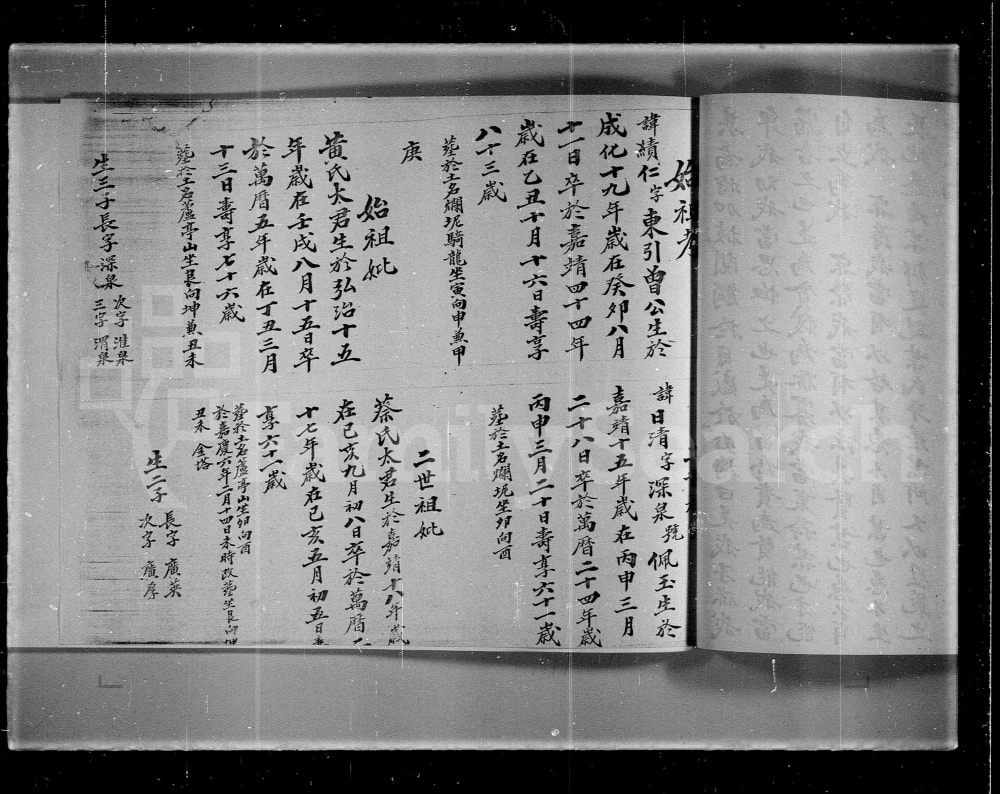 始祖考
諱績仁字東引曾公生於
成化十九年歲在癸卯八月
十一日卒於嘉靖四十四年
歲在乙丑十月十六日壽享
八十三歲
塟於土名爛坭騎龍坐寅向申兼甲
庚
始祖妣
黃氏太君生於弘治十五
年歲在壬戌八月十五日卒
於萬曆五年歲在丁丑三月
十三日壽享七十六歲
塟於土名蘆亭山坐艮向坤兼丑未
生三子長字深泉
次字淮泉
三字渭泉
諱日清字深泉號佩玉生於
嘉靖十五年歲在丙申三月
二十八日卒於萬曆二十四年歲
丙申三月二十日壽享六十一歲
塟於土名爛坭坐卯向酉
二世祖妣
蔡氏太君生於嘉靖十八年歲
在己亥九月初八日卒於萬曆二
十七年歲在己亥五月初五日壽
享六十一歲
塟於土名蘆亭山坐卯向酉
於嘉慶六年二月十四日未時改塟坐艮向坤
丑未 金塔
生二子
長字 廣英
次字 廣厚
FamilySearch